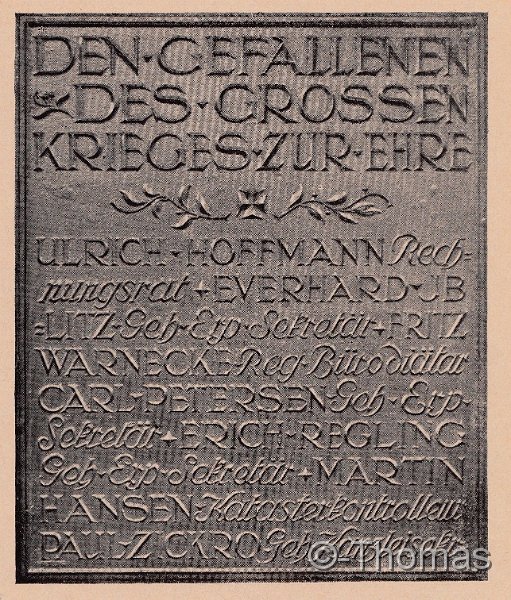 DEN · GEFALLENEN
DES · GROSSEN
KRIEGES · ZUR · EHRE
ULRICH · HOFFMANN Rech=
nungsrat + EVERHARD · UB
=LITZ · Geh · Exp · Sekretär + FRITZ
WARNECKE Reg · Bürodiätar
CARL · PETERSEN · Geh · Exp ·
Sekretär + ERICH · REGLING
Geh · Exp · Sekretär + MARTIN
HANSEN · Katasterkontrolleur
PAUL · ZICKRO Geh · Kanzleisekr ·
© Thomas